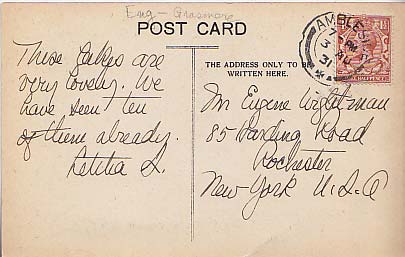 Eng - Grasmere
POST CARD
THE ADDRESS ONLY TO BE
WRITTEN HERE.
AMBLES
7 PM
31
HALFPENCE
These Lakes are
very lovely. We
have seen ten
of them already.
Letitia L.
Mr Eugene Wightman
85 Harding Road
Rochester
New York U.S.A